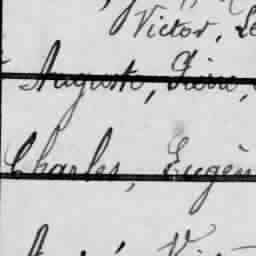 Victor,
Auguste, Pierre,
Charles, Eugèn